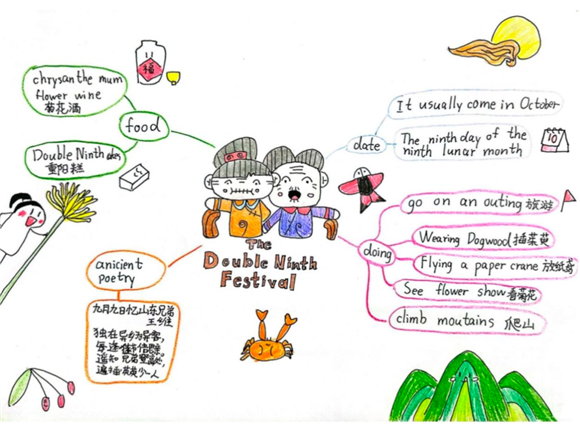 chrysanthe mum
flower wine
菊花酒
福
food
Double Ninth cakes
重阳糕
date
It usually come in October
The ninth day of the
ninth lunar month
10
The
Double Ninth
Festival
doing
go on an outing 旅游
Wearing Dogwood 插茱萸
Flying a paper crane 放纸鸢
See flower show 看菊花
climb moutains 爬山
anicient
poetry
九月九日忆山东兄弟
王维
独在异乡为异客，
每逢佳节倍思亲。
遥知兄弟登高处，
遍插茱萸少一人